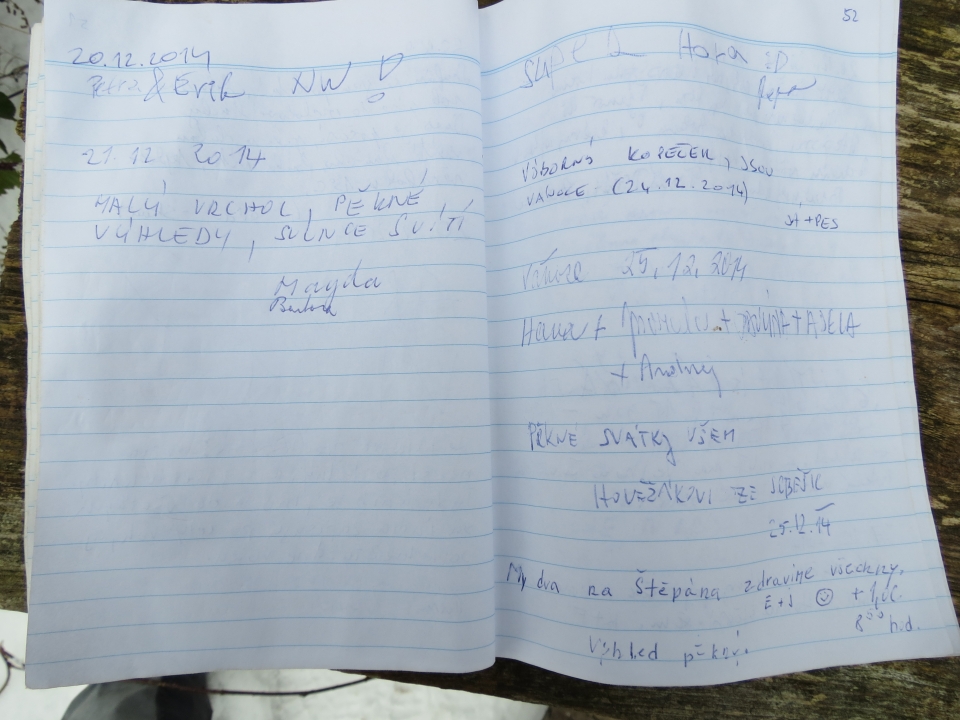 20.12.2014
Petra & Erik NW !
21.12 2014
MALÝ VRCHOL, PĚKNÉ
VÝHLEDY, SLUNCE SVÍTÍ
Magda
52
SUPER Hora :D
VÝBORNÝ KOPEČEK, JSOU
VÁNOCE (24.12.2014)
JÁ + PES
Vánoce 25.12.2014
Hana +
+ Andrej
PĚKNÉ SVÁTKY VŠEM
25.12.14
My dva na Štěpána zdravíme všechny.
E+J ☺
8°° h.d.
Výhled pěkný.